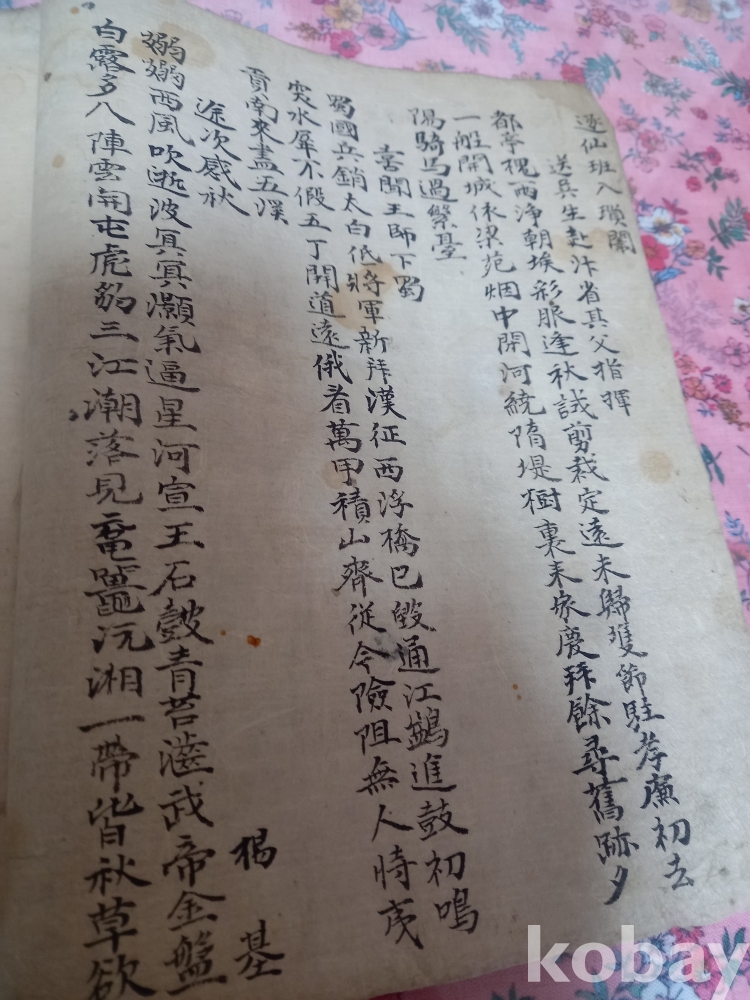 逐仙班入瑣闈
送兵生赴汴省其父指揮
都亭槐西淨朝埃彩服逢秋試剪裁定遠未歸雙節駐孝廉初去
一艇開城依梁苑烟中開河繞隋堤樹裏来家慶拜餘尋舊跡夕
陽騎馬過繁臺
喜聞王師下蜀
蜀國兵銷太白低將軍新拜漢征西浮橋已毀通江鷁進鼓初鳴
突水犀不假五丁開道遠俄看萬甲積山齊從今險阻無人恃
南來盡五溪
途次感秋 楊基
嫋嫋西風吹逝波冥冥灝氣逼星河宣王石鼓青苔澁武帝金盤
白露多八陣雲開屯虎豹三江潮落見黿鼉沅湘一帶皆秋草欲
kobay